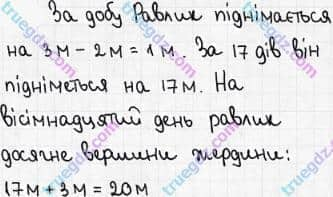 За добу Равлик піднімається
на 3м - 2м = 1м. За 17 дів він
підніметься на 17м. На
вісімнадцятий день равлик
досягне вершини жердини:
17м + 3м = 20м